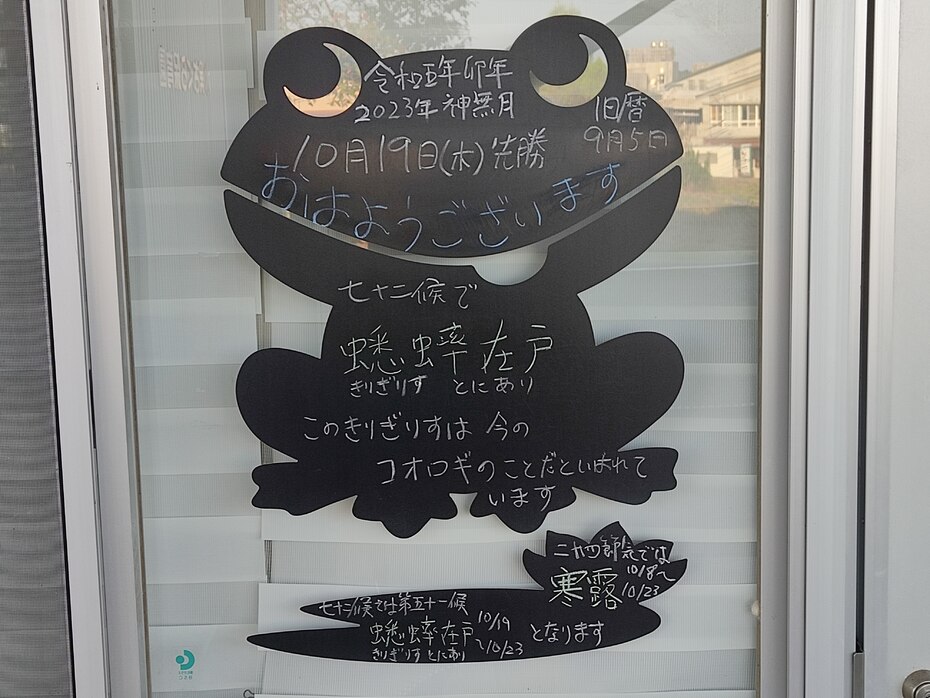 令和五年 卯年
2023年 神無月
旧暦
9月5日
10月19日(木) 先勝
おはようございます
七十二候で
蟋蟀在戸
きりぎりす とにあり
このきりぎりすは 今の
コオロギのことだといわれて
います
二十四節気では
寒露
10/8〜
10/23
七十二候では第五十一候
蟋蟀在戸
きりぎりす とにあり
10/19
〜10/23
となります